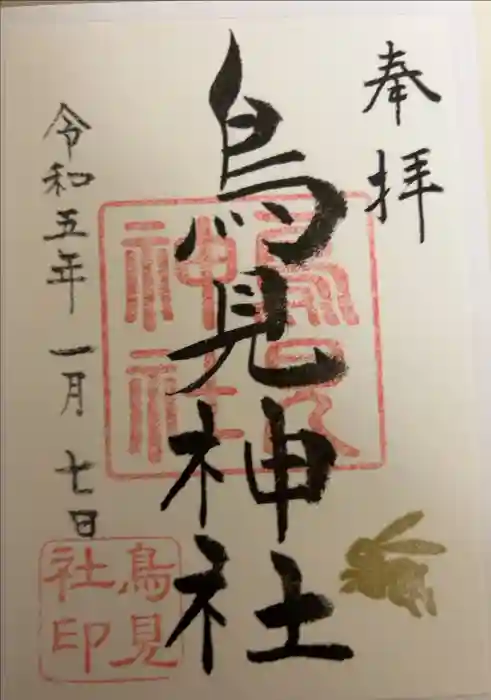 奉拝
鳥見神社
鳥見神社
令和五年一月七日
鳥見
社印